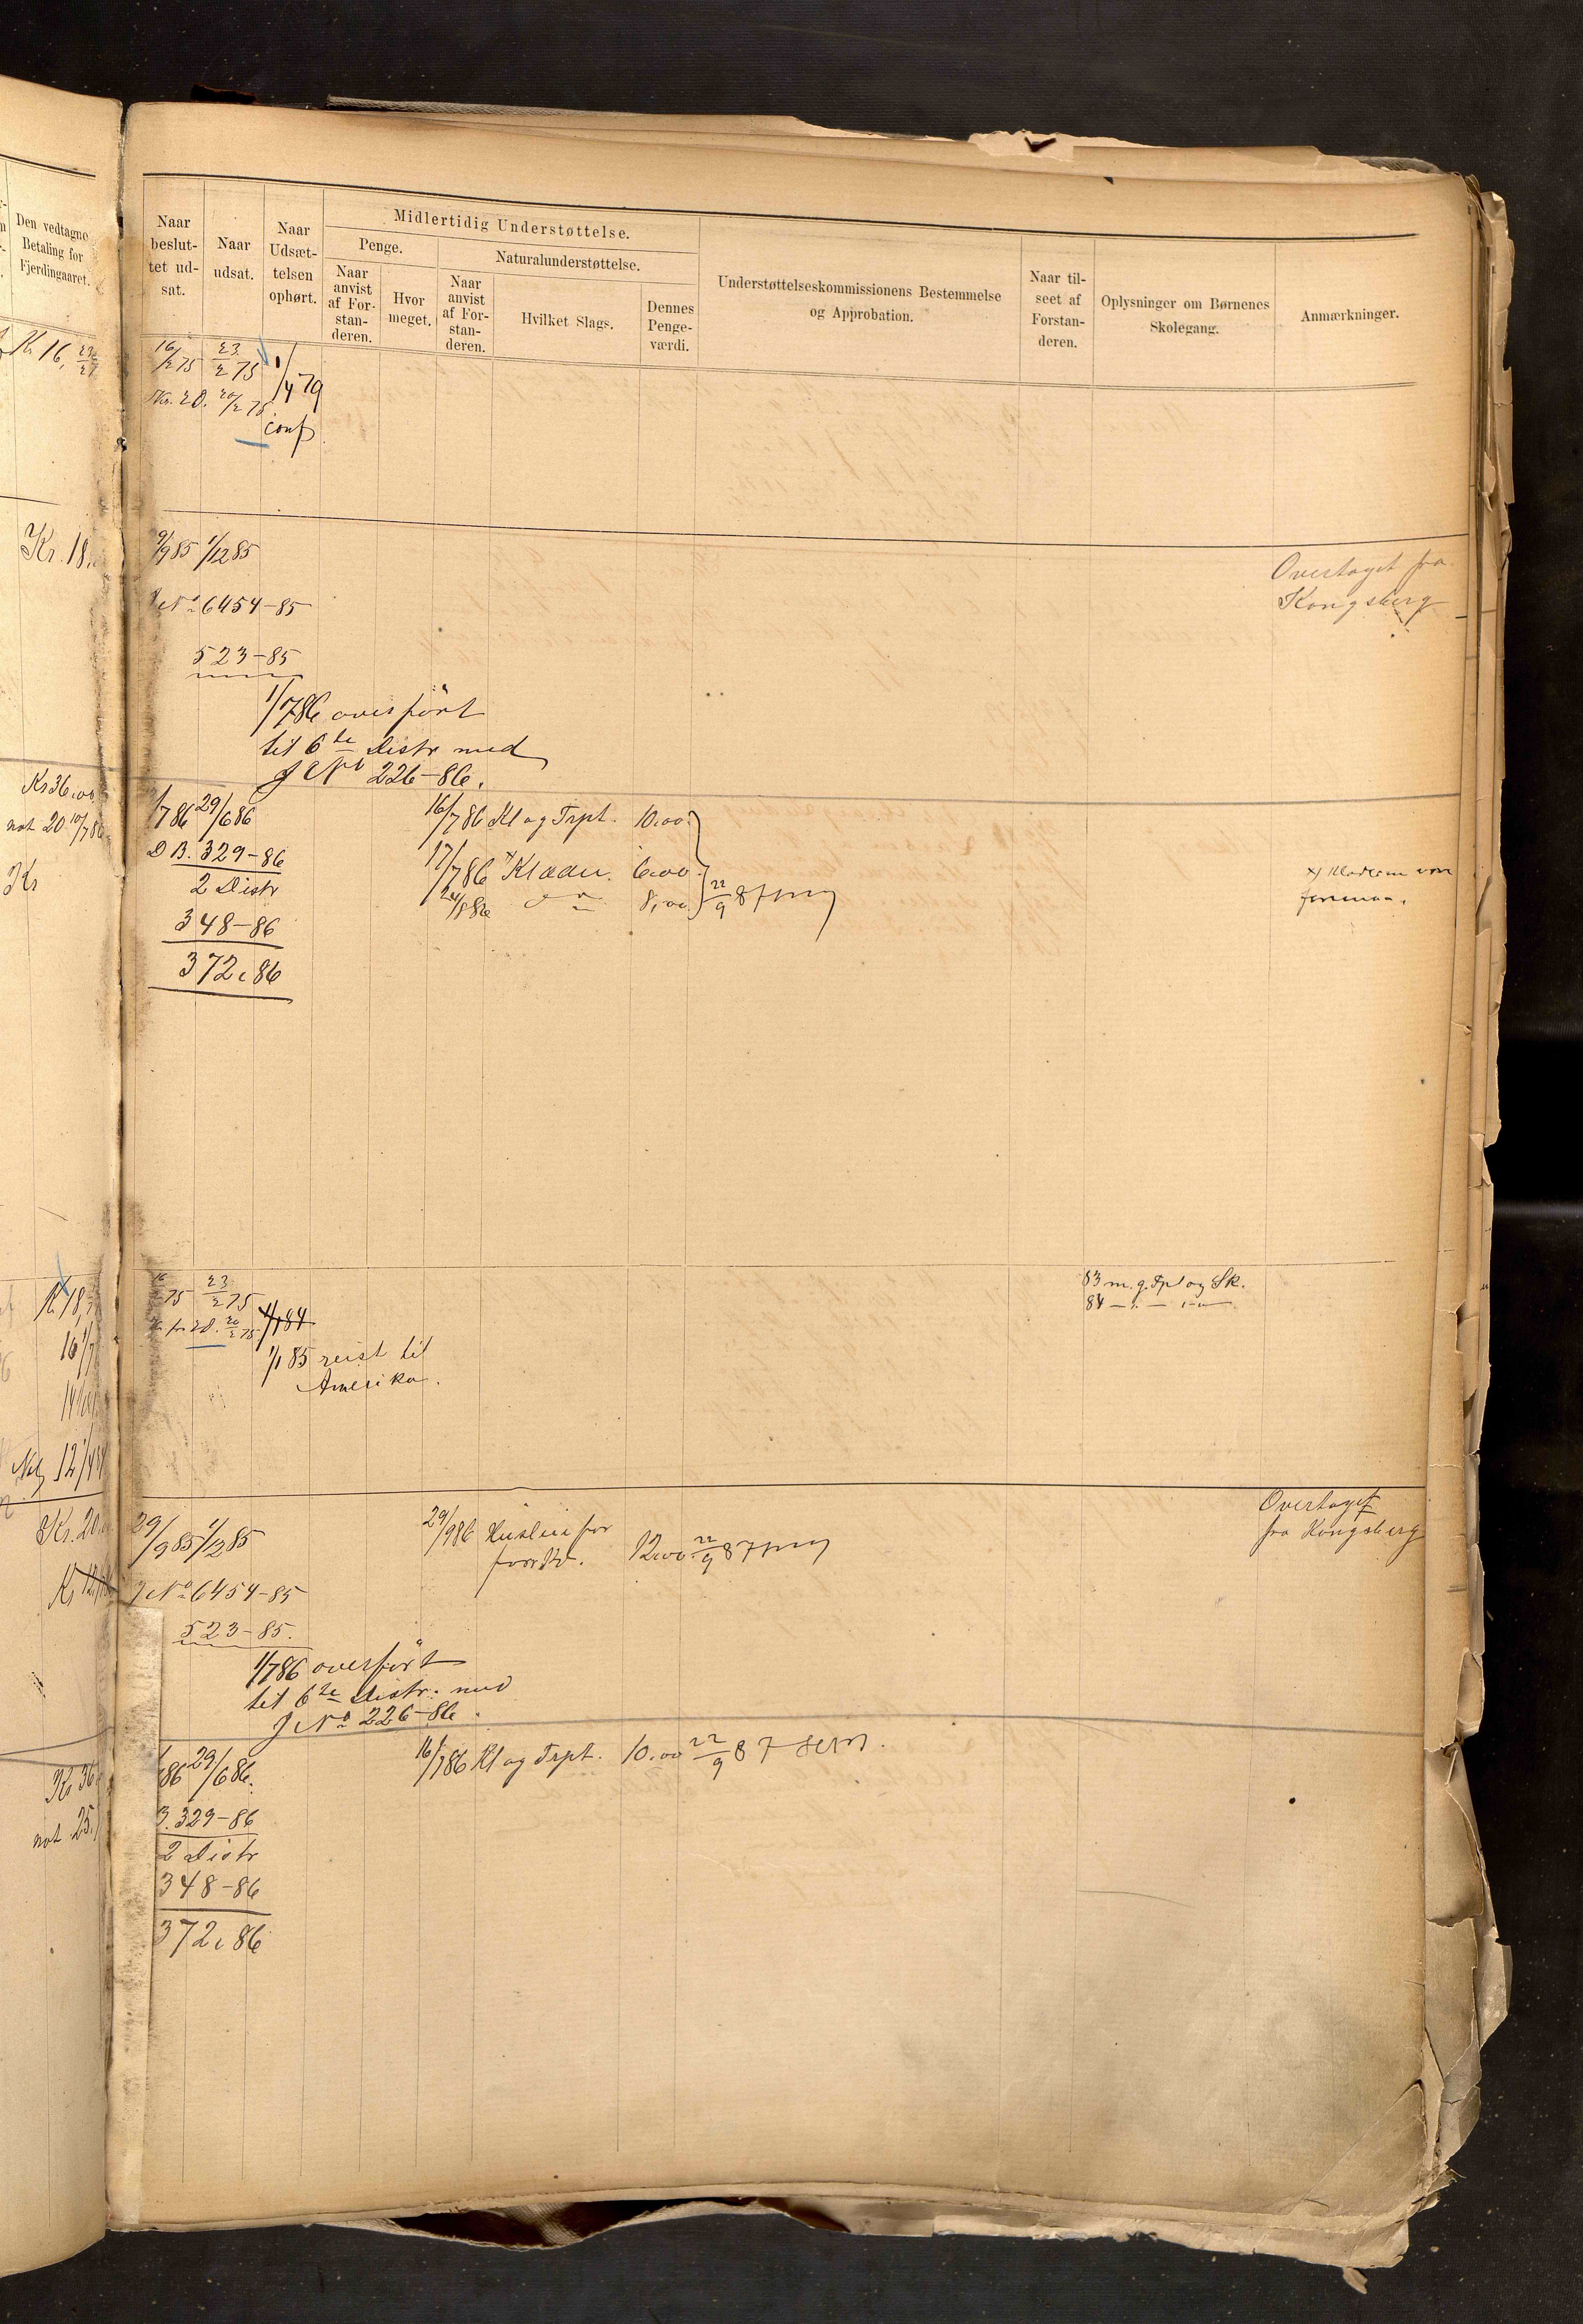 Den vedtagne
Betaling for
Fjerdingaaret.
Naar
beslut-
tet ud-
sat.
Naar
udsat.
Naar
Udsæt-
telsen
ophørt.
Midlertidig Understøttelse.
Penge.
Naar
anvist
af For-
stan-
deren.
Hvor
meget.
Naturalunderstøttelse.
Naar
anvist
af For-
stan-
deren.
Hvilket Slags.
Dennes
Penge-
værdi.
Understøttelseskommissionens Bestemmelse
og Approbation.
Naar til-
seet af
Forstan-
deren.
Oplysninger om Børnenes
Skolegang.
Anmærkninger.
Kr 16,
16/2 75 23/2 75 1/4 79
20/2 75
conf
Kr. 18.
9/9 85 1/12 85
Overtaget fra
Kongsberg
J No 6454-85
523-85
1/7 86 overført
til 6te Distr med
J No 226-86.
Kr 36.00
not 20 10/7 86
Kr
1/7 86 29/6 86 16/7 86 Kl og Trpt. 10.00
D B. 329-86 17/7 86 x Klæder. 6.00
2 Distr 24/8 86 8,00 22/9 87
348-86
372. 86
x) Klæderne
Kr 18,
75 23/2 75
20/2 75 1/1 84
1/1 85 reist til
Amerika.
83 m. g. Spl og Sk.
84
12
Kr. 20
29/9 85 1/12 85 29/9 86 12.00 22/9 87
Overtaget
fra Kongsberg
J No 6454-85
523-85.
1/7 86 overført
til 6te Distr. med
J No 226-86.
Kr 36
not 25.
86 29/6 86. 16/7 86 Kl og Trpt. 10.00 22/9 87
B. 329-86
2 Distr
348-86
372. 86